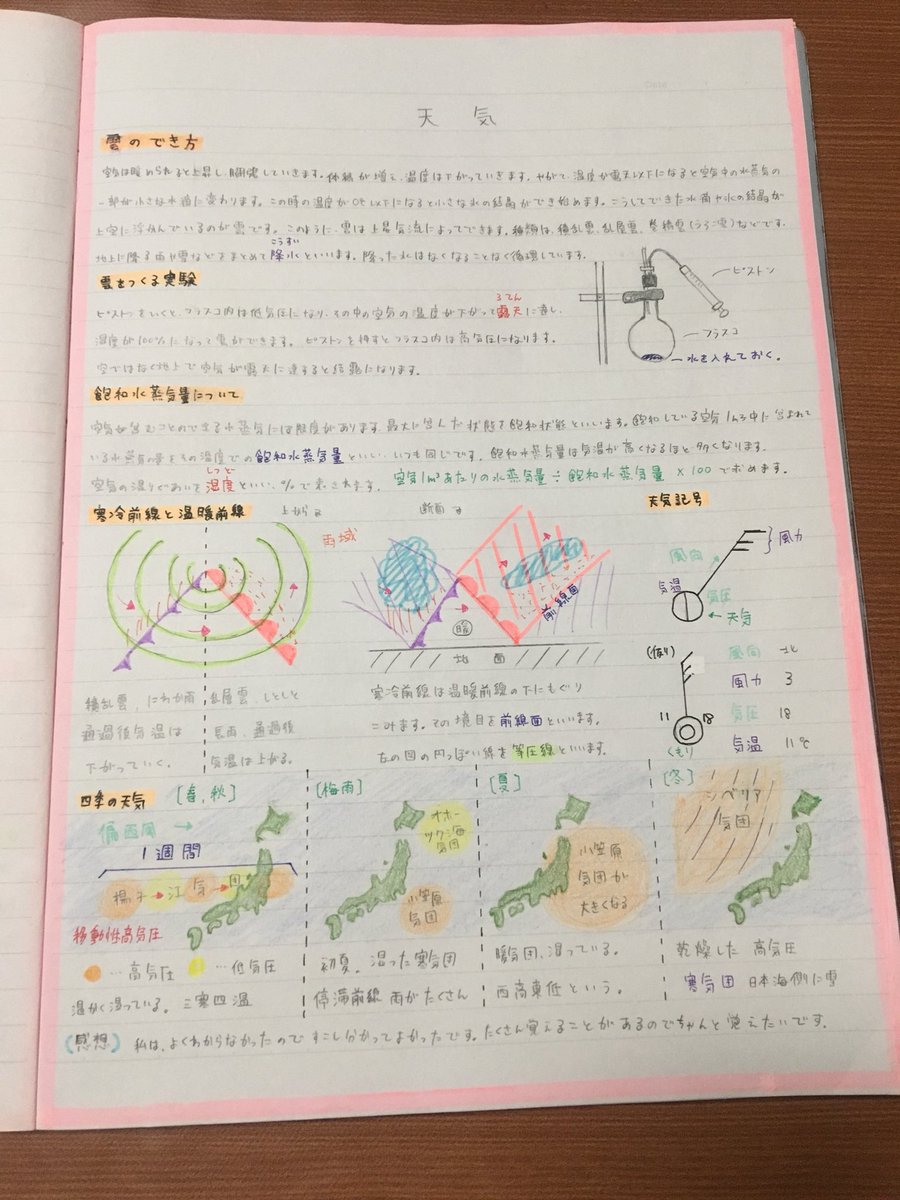 天気
雲のでき方
空気は暖められると上昇し、膨張していきます。体積が増え、温度は下がっていきます。やがて、温度が露天以下になると空気中の水蒸気の
一部が小さな水滴に変わります。この時の温度が0℃以下になると小さな氷の結晶ができ始めます。こうしてできた水滴や氷の結晶が
上空に浮かんでいるのが雲です。このように、雲は上昇気流によってできます。種類は、積乱雲、乱層雲、巻積雲(うろこ雲)などです。
こうすい
地上に降る雨や雪などをまとめて降水といいます。降った水はなくなることなく循環しています。
雲をつくる実験
ろてん
ピストンをひくと、フラスコ内は低気圧になり、その中の空気の温度が下がって露天に達し、
湿度が100%になって雲ができます。ピストンを押すとフラスコ内は高気圧になります。
空ではなく地上で空気が露天に達すると結露になります。
ピストン
フラスコ
水を入れておく。
飽和水蒸気量について
空気が含むことのできる水蒸気には限度があります。最大に含んだ状態を飽和状態といいます。飽和している空気1m3中に含まれて
いる水蒸気の量をその温度での飽和水蒸気量といい、いつも同じです。飽和水蒸気量は気温が高くなるほど多くなります。
しつど
空気の湿りぐあいを湿度といい、%で表されます。 空気1m³あたりの水蒸気量÷飽和水蒸気量×100で求めます。
寒冷前線と温暖前線
上から
断面
雨域
暖
前線面
地面
積乱雲、にわか雨
通過後気温は
下がっていく。
乱層雲、しとしと
長雨、通過後
気温は上がる。
寒冷前線は温暖前線の下にもぐり
こみます。その境目を前線面といいます。
左の図の円っぽい線を等圧線といいます。
天気記号
風力
風向
気温
気圧
天気
(例)
11
18
くもり
風向 北
風力 3
気圧 18
気温 11℃
四季の天気
[春,秋]
偏西風→
1週間
揚子→江→気→団
移動性高気圧
…高気圧 …低気圧
温かく湿っている。三寒四温
[梅雨]
オホー
ツク海
気団
小笠原
気団
初夏、湿った寒気団
停滞前線 雨がたくさん
[夏]
小笠原
気団が
大きくなる
暖気団、湿っている。
西高東低という。
[冬]
シベリア
気団
乾燥した 高気圧
寒気団 日本海側に雪
(感想) 私は、よくわからなかったのですこし分かってよかったです。たくさん覚えることがあるのでちゃんと覚えたいです。